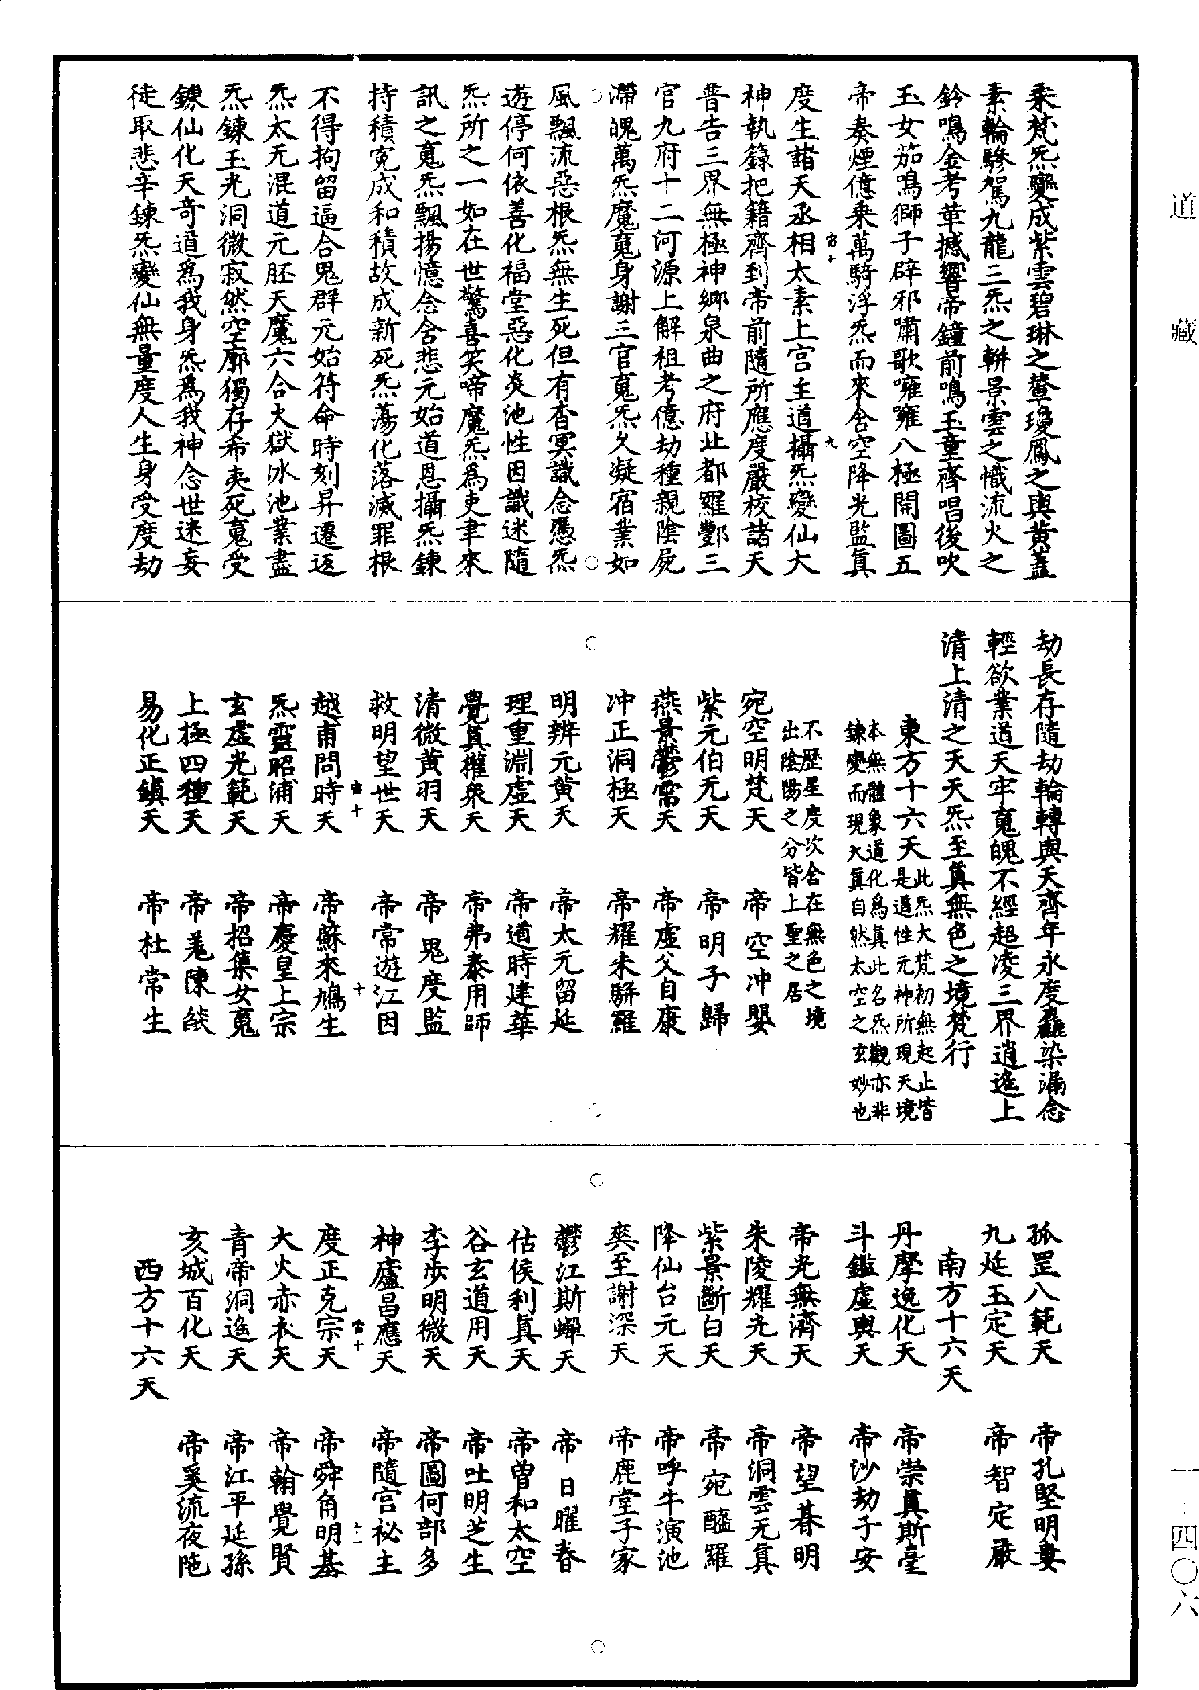 乘梵炁變成紫雲碧琳之輦瓊鳳之輿黃蓋
素輪驂駕九龍三炁之輧景雲之幟流火之
鈴鳴金考華撼響帝鐘前鳴玉童齊唱後吹
玉女笳鳴獅子辟邪嘯歌嗈嗈八極開圖五
帝奏煙億乘萬騎浮炁而來含空降光監真
度生諸天丞相太素上宫主道攝炁變仙大
神執籙把籍齊到帝前隨所應度嚴校諸天
普告三界無極神鄉泉曲之府北都羅酆三
官九府十二河源上解祖考億劫種親陰屍
滯魄萬炁魔䰟身謝三官䰟炁久凝宿業如
風飄流惡根炁無生死但有杳冥識念慿炁
遊停何依善化福堂惡化炎池性因識迷隨
炁所之一如在世驚喜笑啼魔炁為吏聿來
訊之䰟炁飄揚憶念含悲元始道恩攝炁鍊
持積寃成和積故成新死炁蕩化落滅罪根
不得拘留逼合鬼群元始符命時刻昇遷返
炁太无混道元胚天魔六合大獄冰池業盡
炁鍊玉光洞微寂然空廓獨存希夷死䰟受
鍊仙化天奇道為我身炁為我神念世迷妄
徒取悲辛鍊炁變仙無量度人生身受度劫
劫長存隨劫輪轉與天齊年永度麤染漏念
輕欲業道天牢䰟魄不經超凌三界逍遙上
清上清之天天炁至真無色之境梵行
東方十六天此炁大梵初無起止皆是道性元神所現天境
本無體象道化為真此名炁觀亦非鍊變而現大真自然太空之玄妙也
不歷星度次舍在無色之境出陰陽之分皆上聖之居
宛空明梵天 帝空冲嬰
紫元伯无天 帝明子歸
燕景鬱常天 帝虛父自康
冲正洞極天 帝耀朱駢羅
明辨元黃天 帝太元留延
理重淵虛天 帝適時建華
覺真權衆天 帝弗泰用師
清微黃羽天 帝思度監
救明望世天 帝常遊江因
越甬問時天 帝蘇來鳩生
炁靈昭浦天 帝慶皇上宗
玄虛光範天 帝招集女䰟
上極四種天 帝羗陳燄
易化正鎮天 帝杜常生
孤罡八範天 帝孔堅明妻
九延玉定天 帝智定嚴
南方十六天
丹摩逸化天 帝崇真斯毫
斗鑑虛輿天 帝沙劫子安
帝光無濟天 帝望暮明
朱陵耀光天 帝洞雲无真
紫景斷白天 帝宛醯羅
降仙台元天 帝呼牛演池
奕至謝深天 帝鹿堂子家
鬱江斯蟬天 帝日曜春
估侯利真天 帝曾和太空
谷玄道用天 帝吐明芝生
李步明微天 帝圖何部多
神廬昌應天 帝隨宫祕主
度正克宗天 帝舜角明基
大火赤衣天 帝翰覺賢
青帝洞逸天 帝江平延孫
亥城百化天 帝奚流夜陁
西方十六天
道藏
一·四〇六